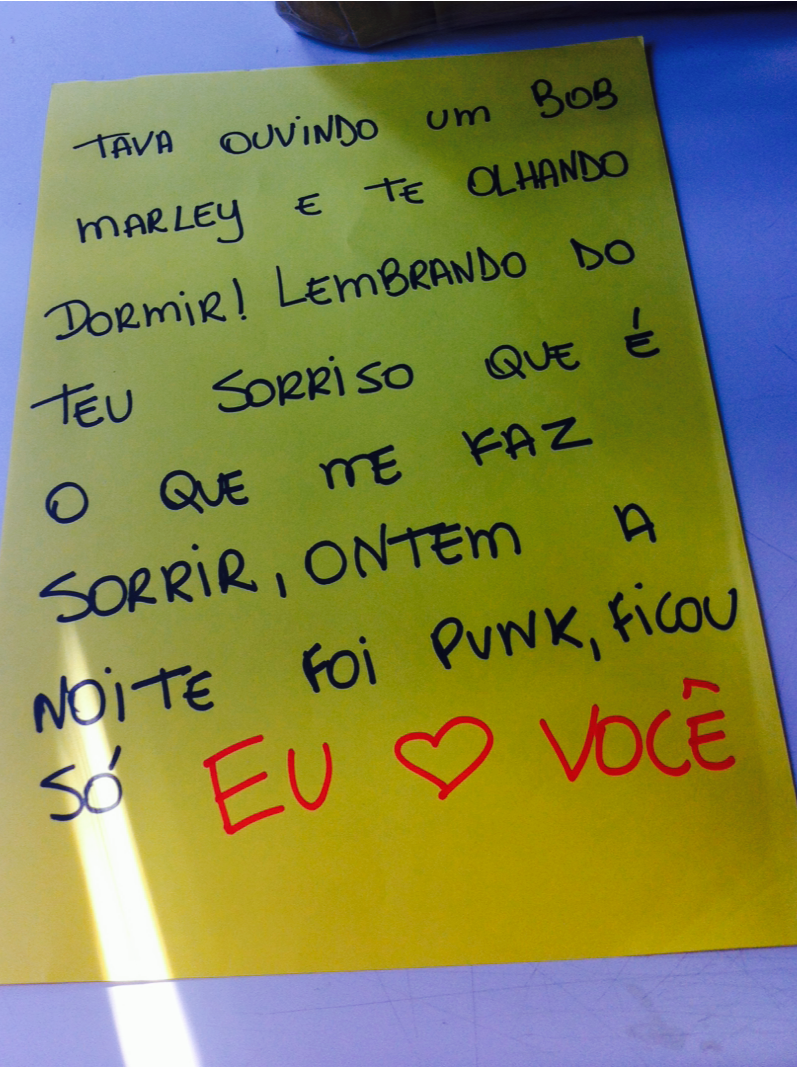 TAVA OUVINDO UM BOB
MARLEY E TE OLHANDO
DORMIR! LEMBRANDO DO
TEU SORRISO QUE É
O QUE ME FAZ
SORRIR, ONTEM A
NOITE FOI PUNK, FICOU
SÓ EU ♡ VOCÊ